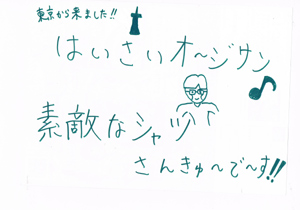 東京から来ました!!
はいさいオ〜ジサン
素敵なシャツ
さんきゅ〜で〜す!!